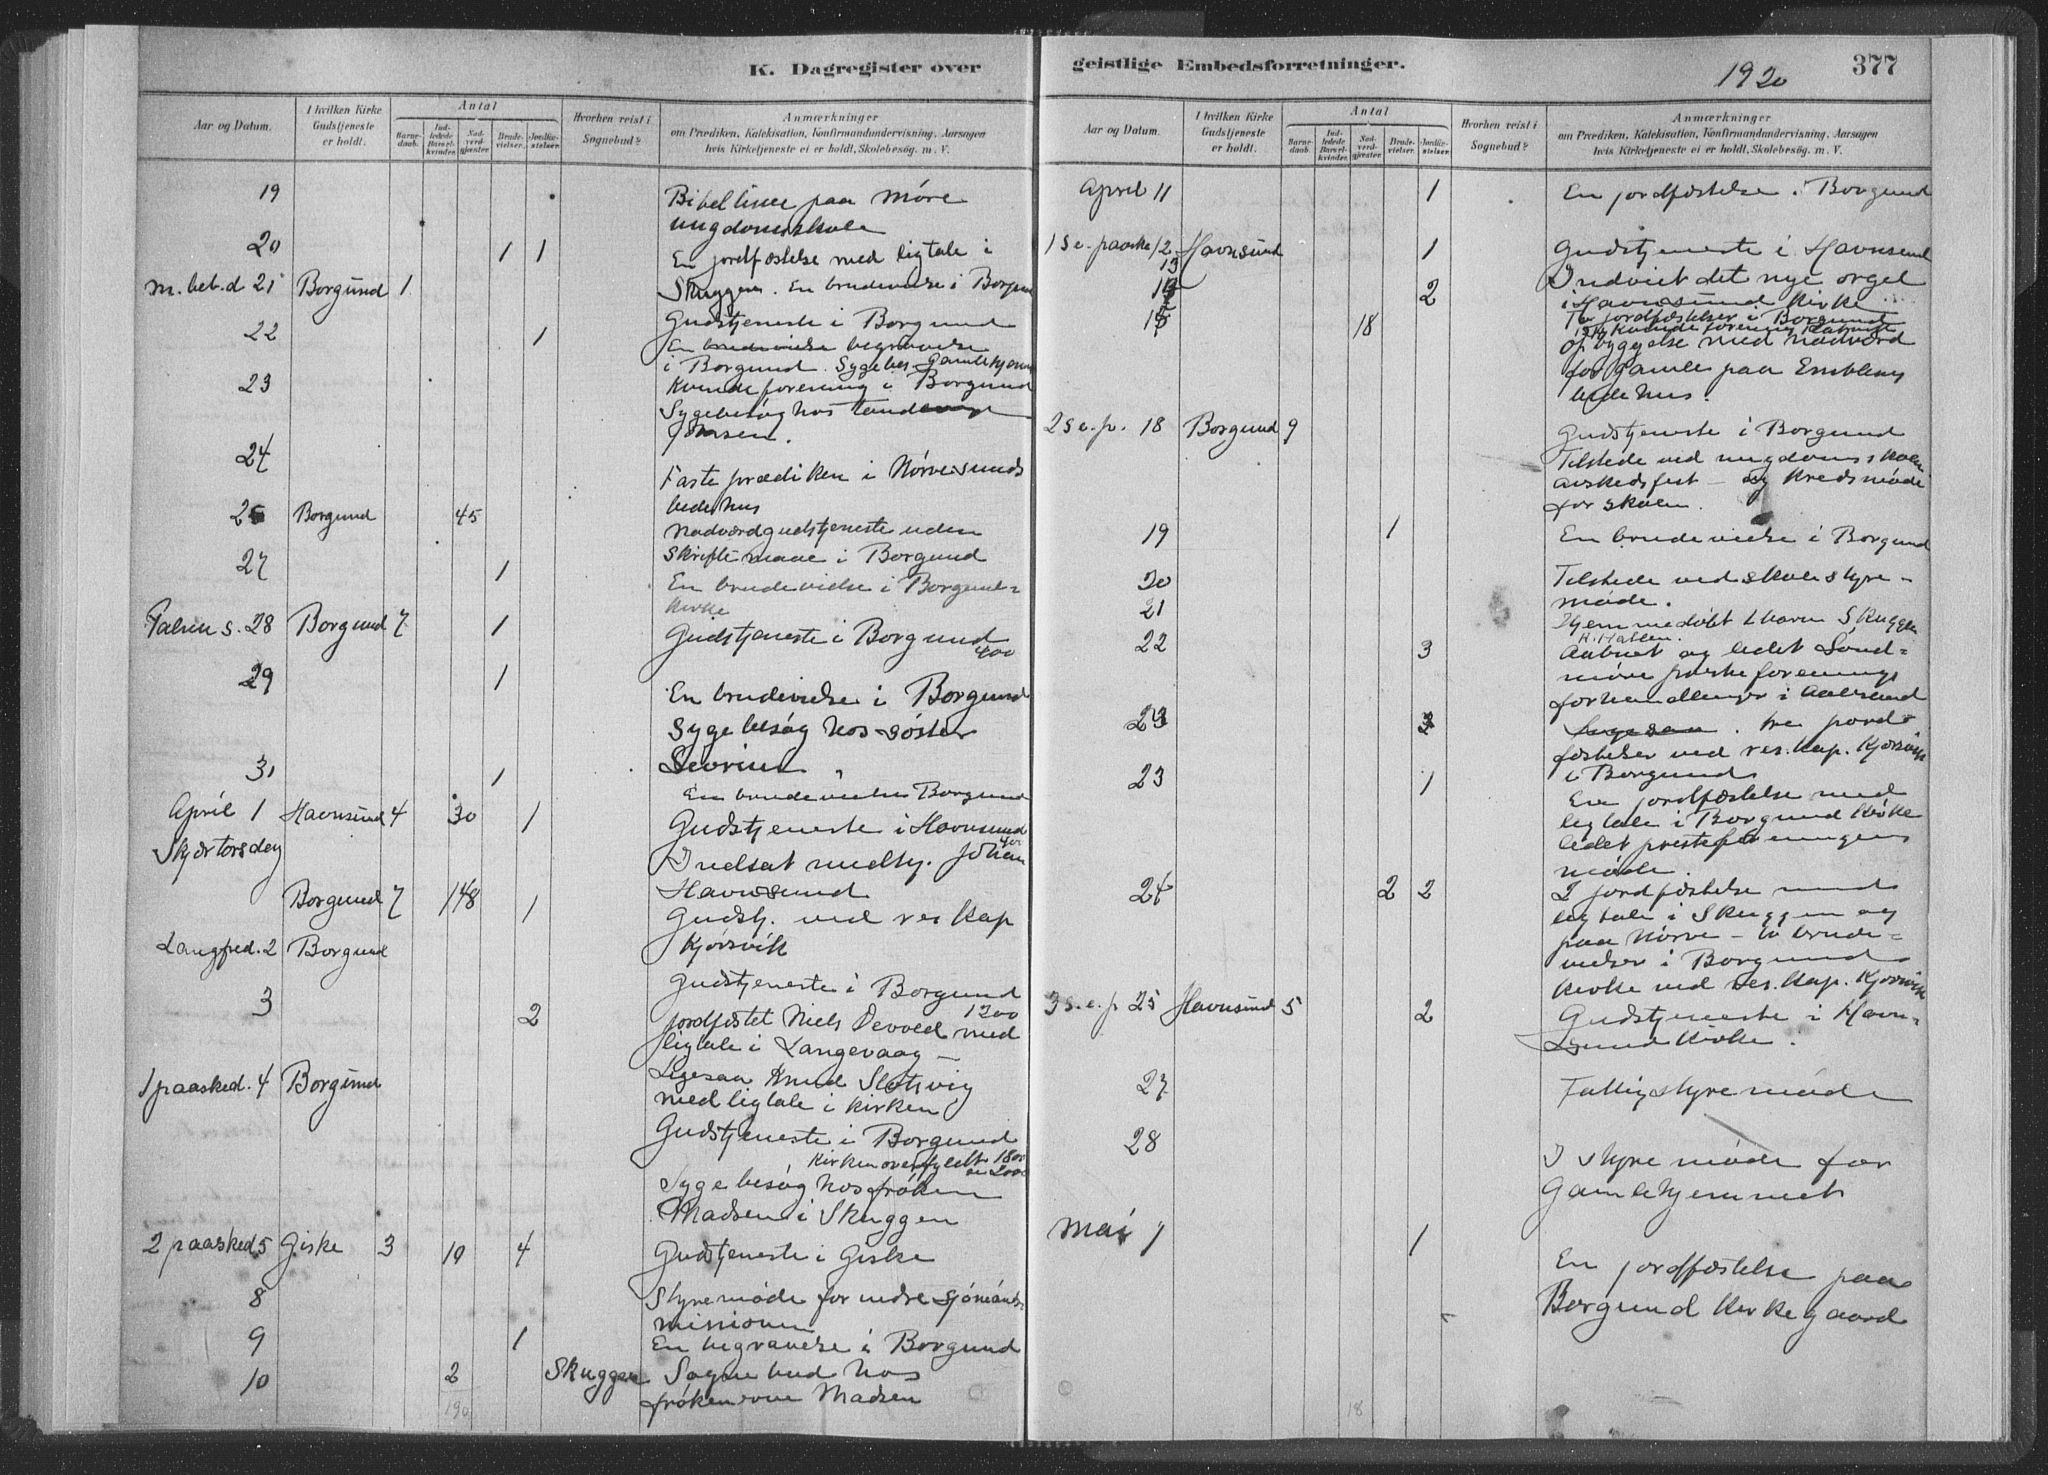 K. Dagregister over
Aar og Datum.
I hvilken Kirke Gudstjeneste er holdt.
Antal
Barnedaab.
Indledede Barselkvinder.
Nadverdgjæster.
Brudevielser.
Jordfæstelser.
Hvorhen reist i Sognebud?
Anmærkninger
om Prædiken, Katekisation, Konfirmandundervisning, Aarsagen
hvis Kirketjeneste ei er holdt, Skolebesøg. m. V.
19 Bibeltime paa Møre
ungdomsskole
20 1 1 En jordfæstelse med ligtale i
m. bet. d 21 Borgund 1 Skuggen. En brudevielse i Borgund
Gudstjeneste i Borgund
22 1 En brudevielse begravelse
i Borgund. Sygebes. Gamlehjem
23 Kvindeforening i Borgund
Sygebesøg hos
24 Fasteprædiken i Nørvesunds
bedehus
26 Borgund 45 Nadverdgudstjeneste uden
skriftemaal i Borgund
27 1 En brudevielse i Borgund-
kirke
Palme s. 28 Borgund 7 1 Gudstjeneste i Borgund
400
29 1 En brudevielse i Borgund
Sygebesøg hos søster
Sevrine
31 1 En brudevielse Borgund
April 1 Havnsund 4 30 1 Gudstjeneste i Havnsund
400
Skjærtorsdag Indsat medhj. Johan
Havnsund
Borgund 7 148 1 Gudstj. ved res. kap
Kjørsvik
Langfred. 2 Borgund
Gudstjeneste i Borgund
1200
3 2 jordfæstet Niels Devold med
ligtale i Langevaag –
Ligesaa Knud Slotsvig
med ligtale i kirken
1 paasked. 4 Borgund
Gudstjeneste i Borgund
Kirken overfyldt 1800
a 2000
Sygebesøg hos frøken
Madsen i Skuggen
2 paasked 5 Giske 3 19 4 Gudstjeneste i Giske
8 Styremøde for indre sjømands-
missionen
9 1 En begravelse i Borgund
10 2 Skuggen Sognebud hos
frøken Madsen
190
geistlige Embedsforretninger.
1920
377
Aar og Datum.
I hvilken Kirke Gudstjeneste er holdt.
Antal
Barnedaab.
Indledede Barselkvinder.
Nadverdgjæster.
Brudevielser.
Jordfæstelser.
Hvorhen reist i Sognebud?
Anmærkninger
om Prædiken, Katekisation, Konfirmandundervisning, Aarsagen
hvis Kirketjeneste ei er holdt, Skolebesøg. m. V.
April 11 1 En jordfæstelse i Borgund
1 s. e. paaske 12 Havnsund 1 Gudstjeneste i Havnsund
13 Indviet det nye orgel
2 i Havnsund kirke
To jordfæstelser i Borgund
15 18
opbyggelse med nadverd
for gamle paa Emblem
bedehus.
2 s. e. p. 18 Borgund 9 Gudstjeneste i Borgund
Tilstede ved ungdomsskolens
avskedsfest – og kredsmøde
for skolen.
19 1 En brudevielse i Borgund
20 Tilstede ved skolestyre-
møde.
21 Hjemmedøbt 1 barn Skuggen
K. Hallen.
22 3 Aabnet og ledet Sønd-
møre presteforenings
forhandlinger i Aalesund
23 tre jord-
fæstelser ved res. kap. Kjørsvik
i Borgund
23 1 En jordfæstelse med
ligtale i Borgund kirke
ledet presteforeningens
møde.
24 2 2 2 jordfæstelse med
ligtale i Skuggen og
paa Nørve – to brude-
vielser i Borgund
kirke ved res. kap. Kjørsvik
3 s. e. p 25 Havnsund 5 2 Gudstjeneste i Havn-
sund kirke.
27 Fattigstyremøde
28 I styremøde for
Gamlehjemmet
Mai 1 1 En jordfæstelse paa
Borgund kirkegaard
18